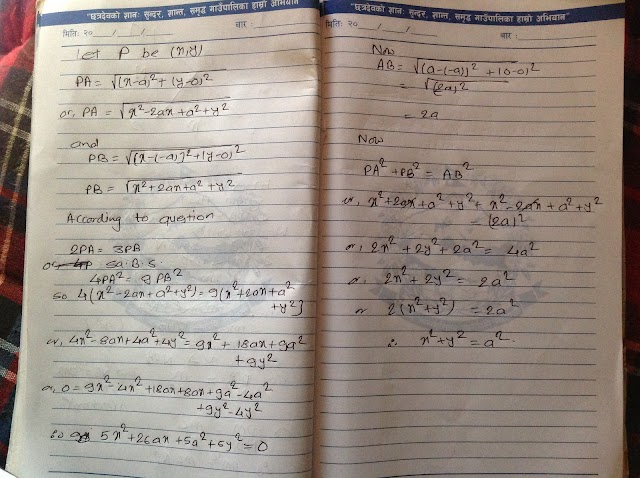 "छत्रदेवको ज्ञानः सुन्दर, शान्त, समृद्ध गाउँपालिका हाम्रो अभियान"
मितिः २०__/__/__ वार :
Let P be (x,y)
PA = √(x-a)²+(y-0)²
or, PA = √x²-2ax+a²+y²
and
PB = √(x-(-a))²+(y-0)²
PB = √x²+2ax+a²+y²
According to question
2PA = 3PB
or sq. B.S.
4PA² = 9PB²
so 4(x²-2ax+a²+y²) = 9(x²+2ax+a²
+y²)
or, 4x²-8ax+4a²+4y² = 9x²+18ax+9a²
+9y²
or, 0 = 9x²-4x²+18ax+8ax+9a²-4a²
+9y²-4y²
5x²+26ax+5a²+5y² = 0
"छत्रदेवको ज्ञानः सुन्दर, शान्त, समृद्ध गाउँपालिका हाम्रो अभियान"
मितिः २०__/__/__ वार :
Now
AB = √(a-(-a))²+(0-0)²
= √(2a)²
= 2a
Now
PA²+PB² = AB²
or, x²+2ax+a²+y²+x²-2ax+a²+y²
= (2a)²
or, 2x²+2y²+2a² = 4a²
or, 2x²+2y² = 2a²
or 2(x²+y²) = 2a²
∴ x²+y² = a².